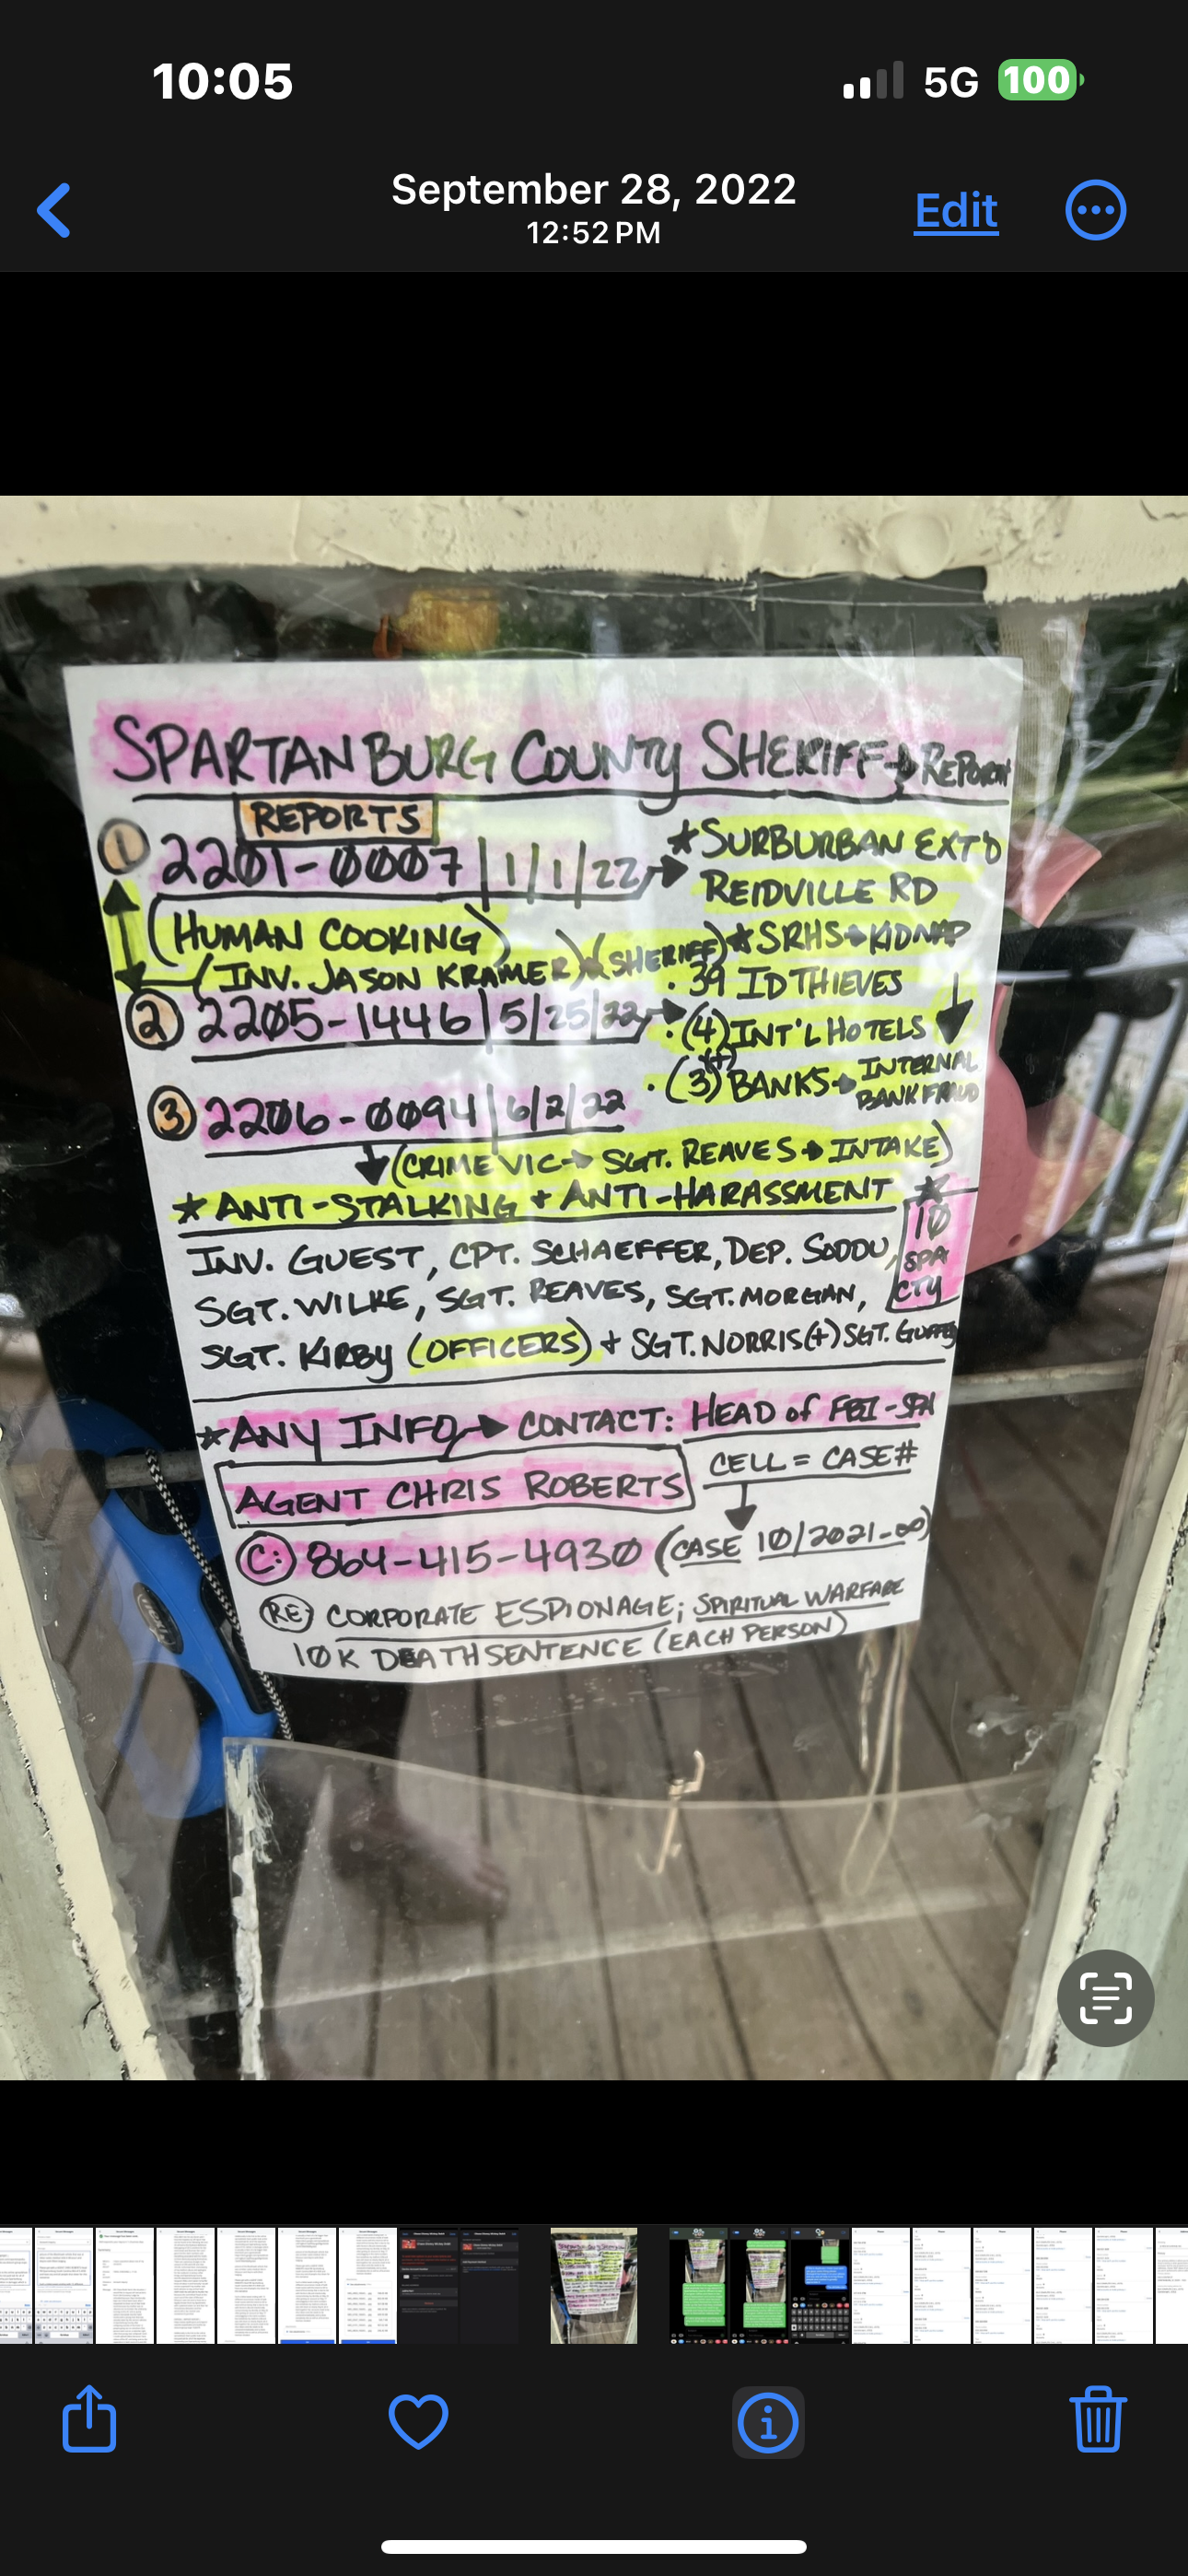 10:05
5G 100
September 28, 2022
12:52 PM
Edit
SPARTANBURG COUNTY SHERIFF → REPORT
REPORTS
① 2201-0007 | 1/1/22 → ★ SURBURBAN EXT'D
REIDVILLE RD
(HUMAN COOKING) ★ SRHS → KIDNAP
(INV. JASON KRAMER) (SHERIFF) · 39 ID THIEVES
② 2205-1446 | 5/25/22 → · (4) INT'L HOTELS
(+)
· (3) BANKS → INTERNAL
BANK FRAUD
③ 2206-0094 | 6/2/22
(CRIME VIC → SGT. REAVES → INTAKE)
★ ANTI-STALKING + ANTI-HARASSMENT ★
INV. GUEST, CPT. SCHAEFFER, DEP. SODDU,
SGT. WILKE, SGT. REAVES, SGT. MORGAN,
10
SPA
CTY
SGT. KIRBY (OFFICERS) + SGT. NORRIS (+) SGT. GUFFEY
★ ANY INFO → CONTACT: HEAD of FBI-SPA
AGENT CHRIS ROBERTS CELL = CASE#
C: 864-415-4930 (CASE 10/2021-∞)
RE CORPORATE ESPIONAGE; SPIRITUAL WARFARE
10K DEATH SENTENCE (EACH PERSON)